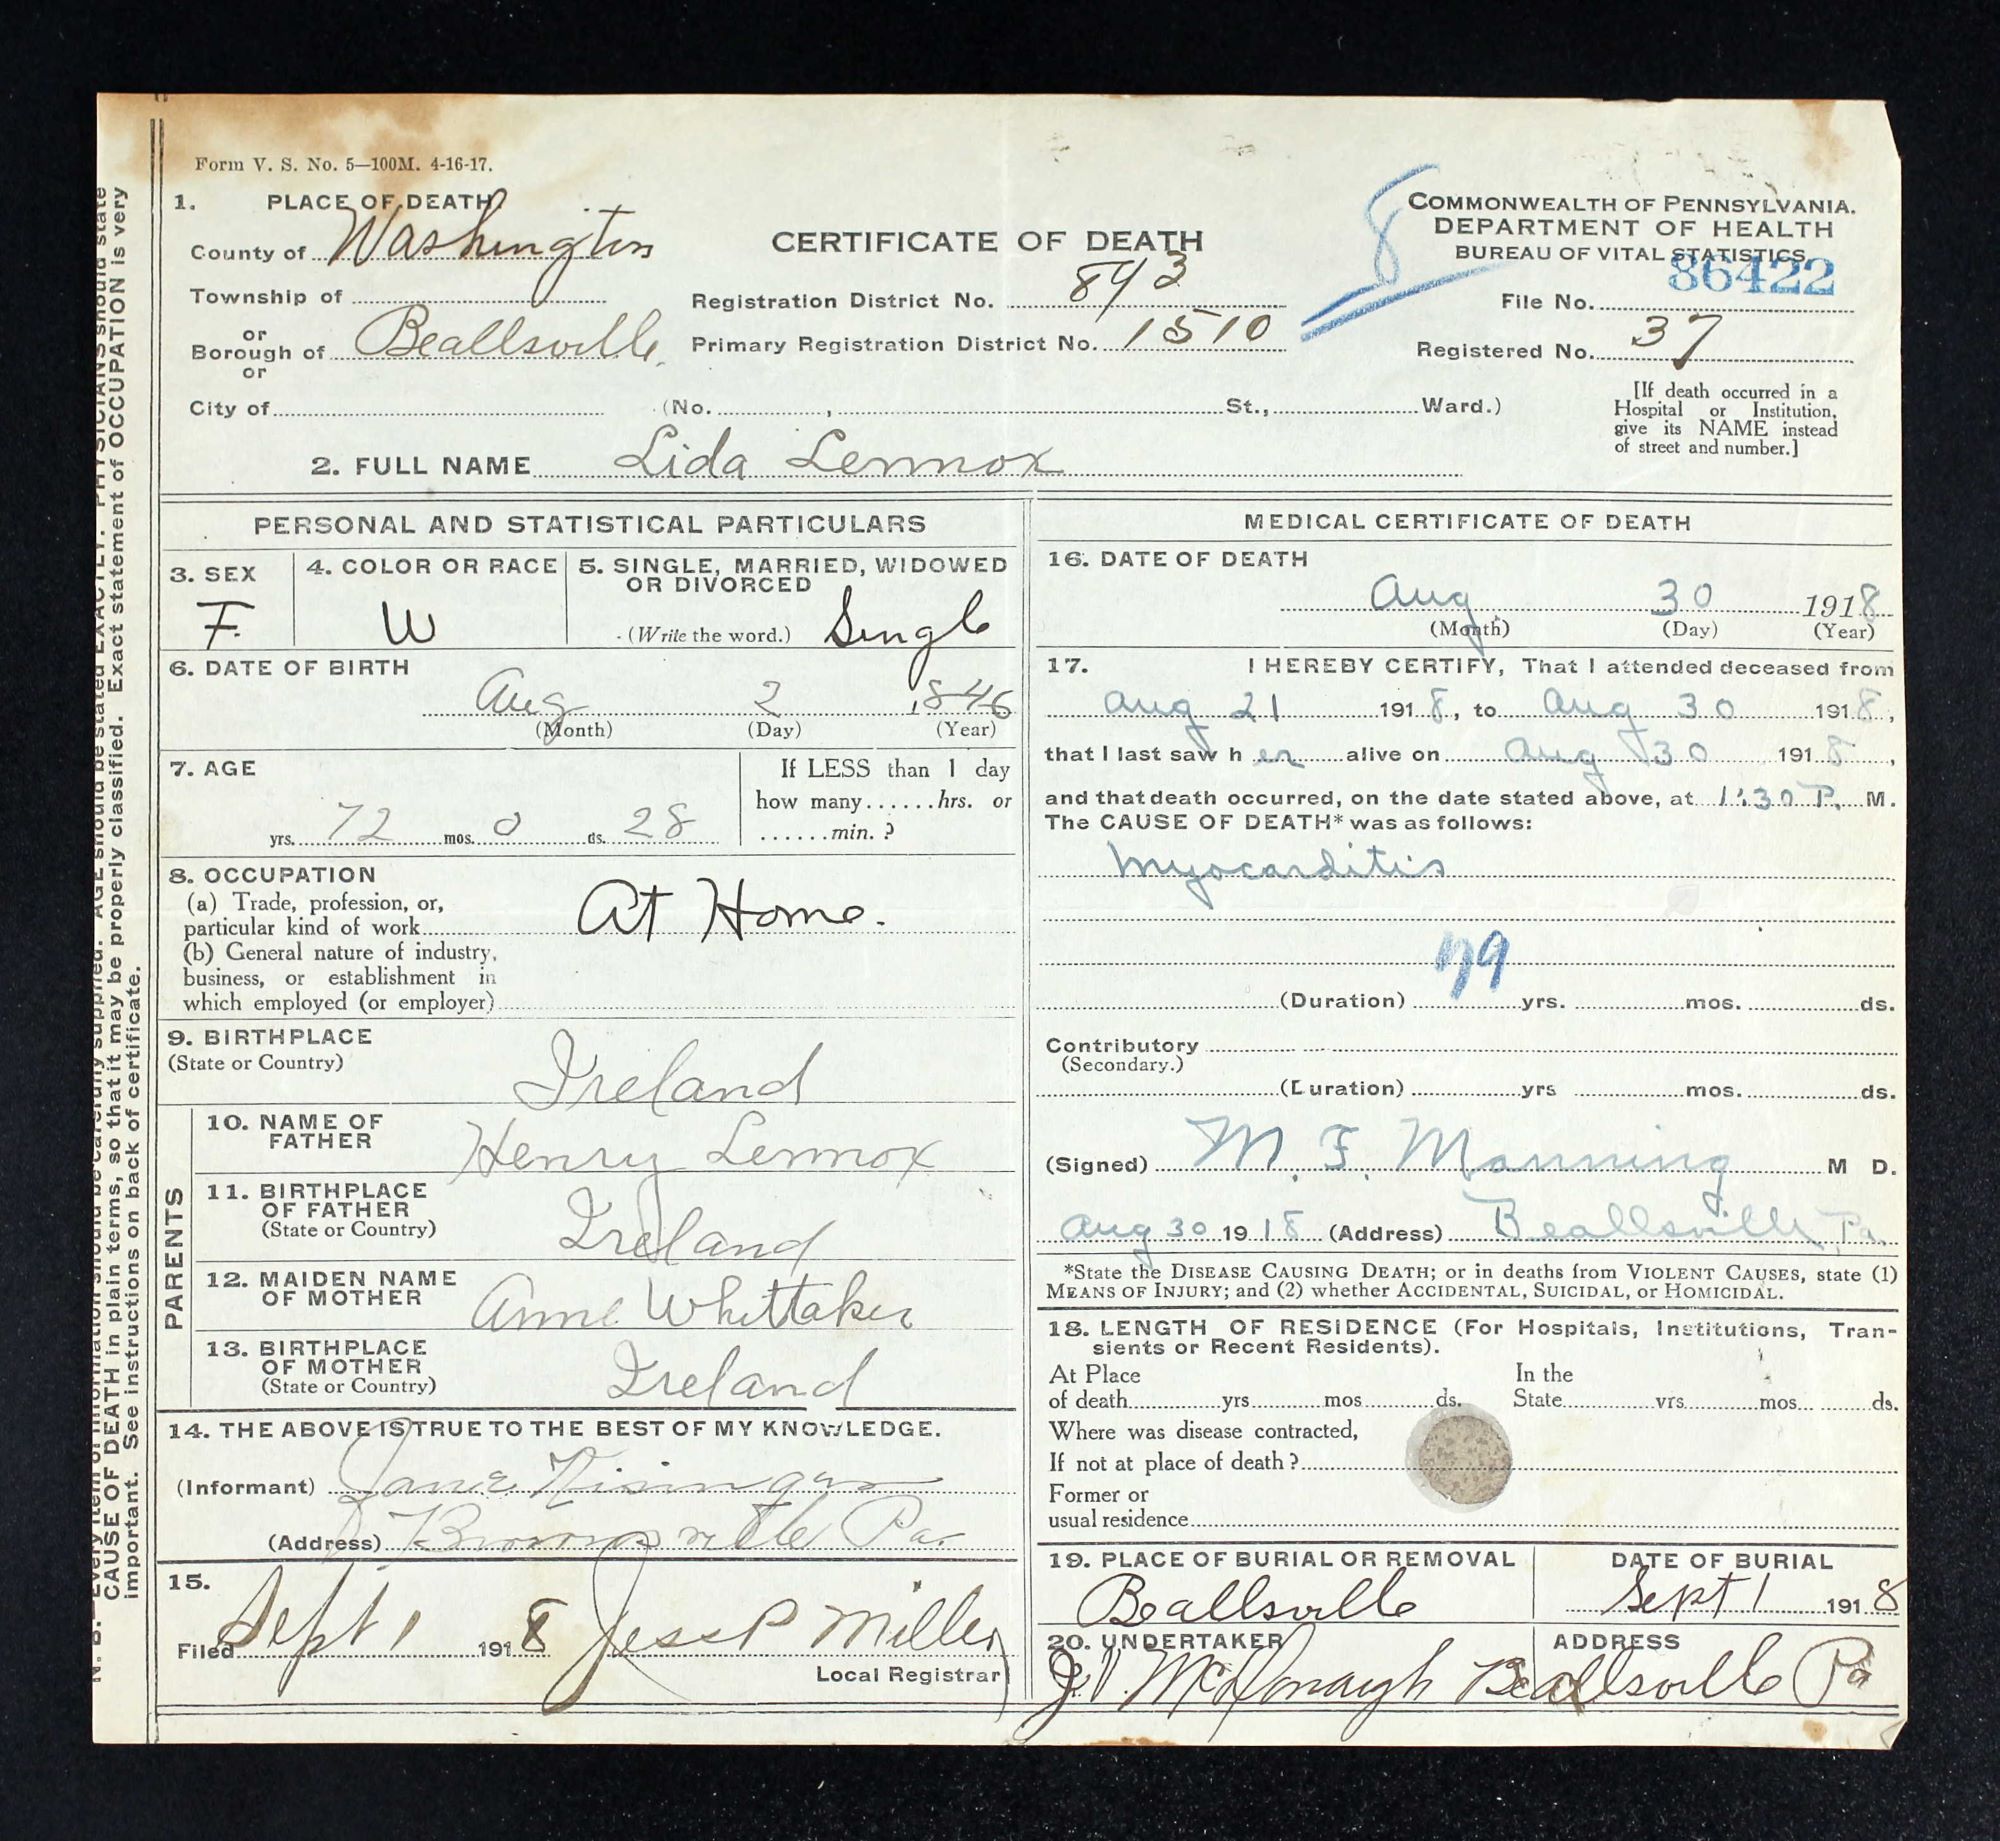 Form V. S. No. 5—100M. 4-16-17.
1. PLACE OF DEATH.
County of Washington
Township of
or
Borough of Beallsville.
or
City of (No. , St., Ward.)
CERTIFICATE OF DEATH
Registration District No. 893
Primary Registration District No. 1510
8
COMMONWEALTH OF PENNSYLVANIA.
DEPARTMENT OF HEALTH
BUREAU OF VITAL STATISTICS
86422
File No.
Registered No. 37
[If death occurred in a
Hospital or Institution,
give its NAME instead
of street and number.]
2. FULL NAME Lida Lennox
PERSONAL AND STATISTICAL PARTICULARS
3. SEX
F.
4. COLOR OR RACE
W
5. SINGLE, MARRIED, WIDOWED
OR DIVORCED
(Write the word.) Single
6. DATE OF BIRTH
Aug 2 1846
(Month) (Day) (Year)
7. AGE
yrs. 72 mos. 0 ds. 28
If LESS than 1 day
how many......hrs. or
......min. ?
8. OCCUPATION
(a) Trade, profession, or,
particular kind of work At Home.
(b) General nature of industry,
business, or establishment in
which employed (or employer)
9. BIRTHPLACE
(State or Country)
Ireland
PARENTS
10. NAME OF
FATHER
Henry Lennox
11. BIRTHPLACE
OF FATHER
(State or Country)
Ireland
12. MAIDEN NAME
OF MOTHER
Anne Whittaker
13. BIRTHPLACE
OF MOTHER
(State or Country)
Ireland
14. THE ABOVE IS TRUE TO THE BEST OF MY KNOWLEDGE.
(Informant) Jane
(Address) Brownsville Pa.
15.
Filed Sept 1 1918 Jess P Miller
Local Registrar
MEDICAL CERTIFICATE OF DEATH
16. DATE OF DEATH
Aug. 30 1918
(Month) (Day) (Year)
17. I HEREBY CERTIFY, That I attended deceased from
Aug 21 1918, to Aug 30 1918,
that I last saw her alive on Aug 30 1918,
and that death occurred, on the date stated above, at 1:30 P. M.
The CAUSE OF DEATH* was as follows:
Myocarditis
79
(Duration) yrs. mos. ds.
Contributory
(Secondary.)
(Duration) yrs mos. ds.
(Signed) M. F. Manning M D.
Aug 30 1918 (Address) Beallsville, Pa.
*State the DISEASE CAUSING DEATH; or in deaths from VIOLENT CAUSES, state (1)
MEANS OF INJURY; and (2) whether ACCIDENTAL, SUICIDAL, or HOMICIDAL.
18. LENGTH OF RESIDENCE (For Hospitals, Institutions, Tran-
sients or Recent Residents).
At Place In the
of death yrs mos ds. State yrs mos ds.
Where was disease contracted,
If not at place of death?
Former or
usual residence
19. PLACE OF BURIAL OR REMOVAL
Beallsville
DATE OF BURIAL
Sept 1 1918
20. UNDERTAKER
J. V. McDonaugh
ADDRESS
Beallsville Pa
N. B.—Every item of information should be carefully supplied. AGE should be stated EXACTLY. PHYSICIANS should state
CAUSE OF DEATH in plain terms, so that it may be properly classified. Exact statement of OCCUPATION is very
important. See instructions on back of certificate.